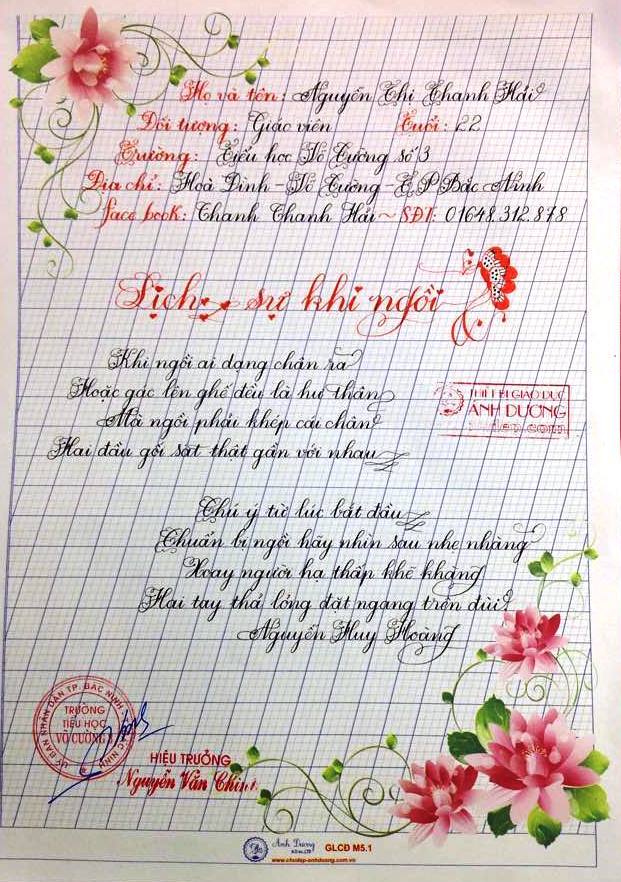 Họ và tên: Nguyễn Thị Thanh Hải
Đối tượng: Giáo viên Tuổi: 22
Trường: Tiểu học Võ Cường số 3
Địa chỉ: Hoà Đình - Võ Cường - TP Bắc Ninh
face book: Thanh Thanh Hải ~ SĐT: 01648.312.878
Lịch sự khi ngồi
Khi ngồi ai dạng chân ra
Hoặc gác lên ghế đều là hư thân
Mà ngồi phải khép cái chân
Hai đầu gối sát thật gần với nhau
THIẾT BỊ GIÁO DỤC
ÁNH DƯƠNG
Chú ý từ lúc bắt đầu
Chuẩn bị ngồi hãy nhìn sau nhẹ nhàng
Xoay người hạ thấp khẽ khàng
Hai tay thả lỏng đặt ngang trên đùi.
Nguyễn Huy Hoàng
ỦY BAN NHÂN DÂN TP. BẮC NINH
TRƯỜNG
TIỂU HỌC
VÕ CƯỜNG
HIỆU TRƯỞNG
Nguyễn Văn Chinh
Ánh Dương
GLCĐ M5.1
www.chudep-anhduong.com.vn